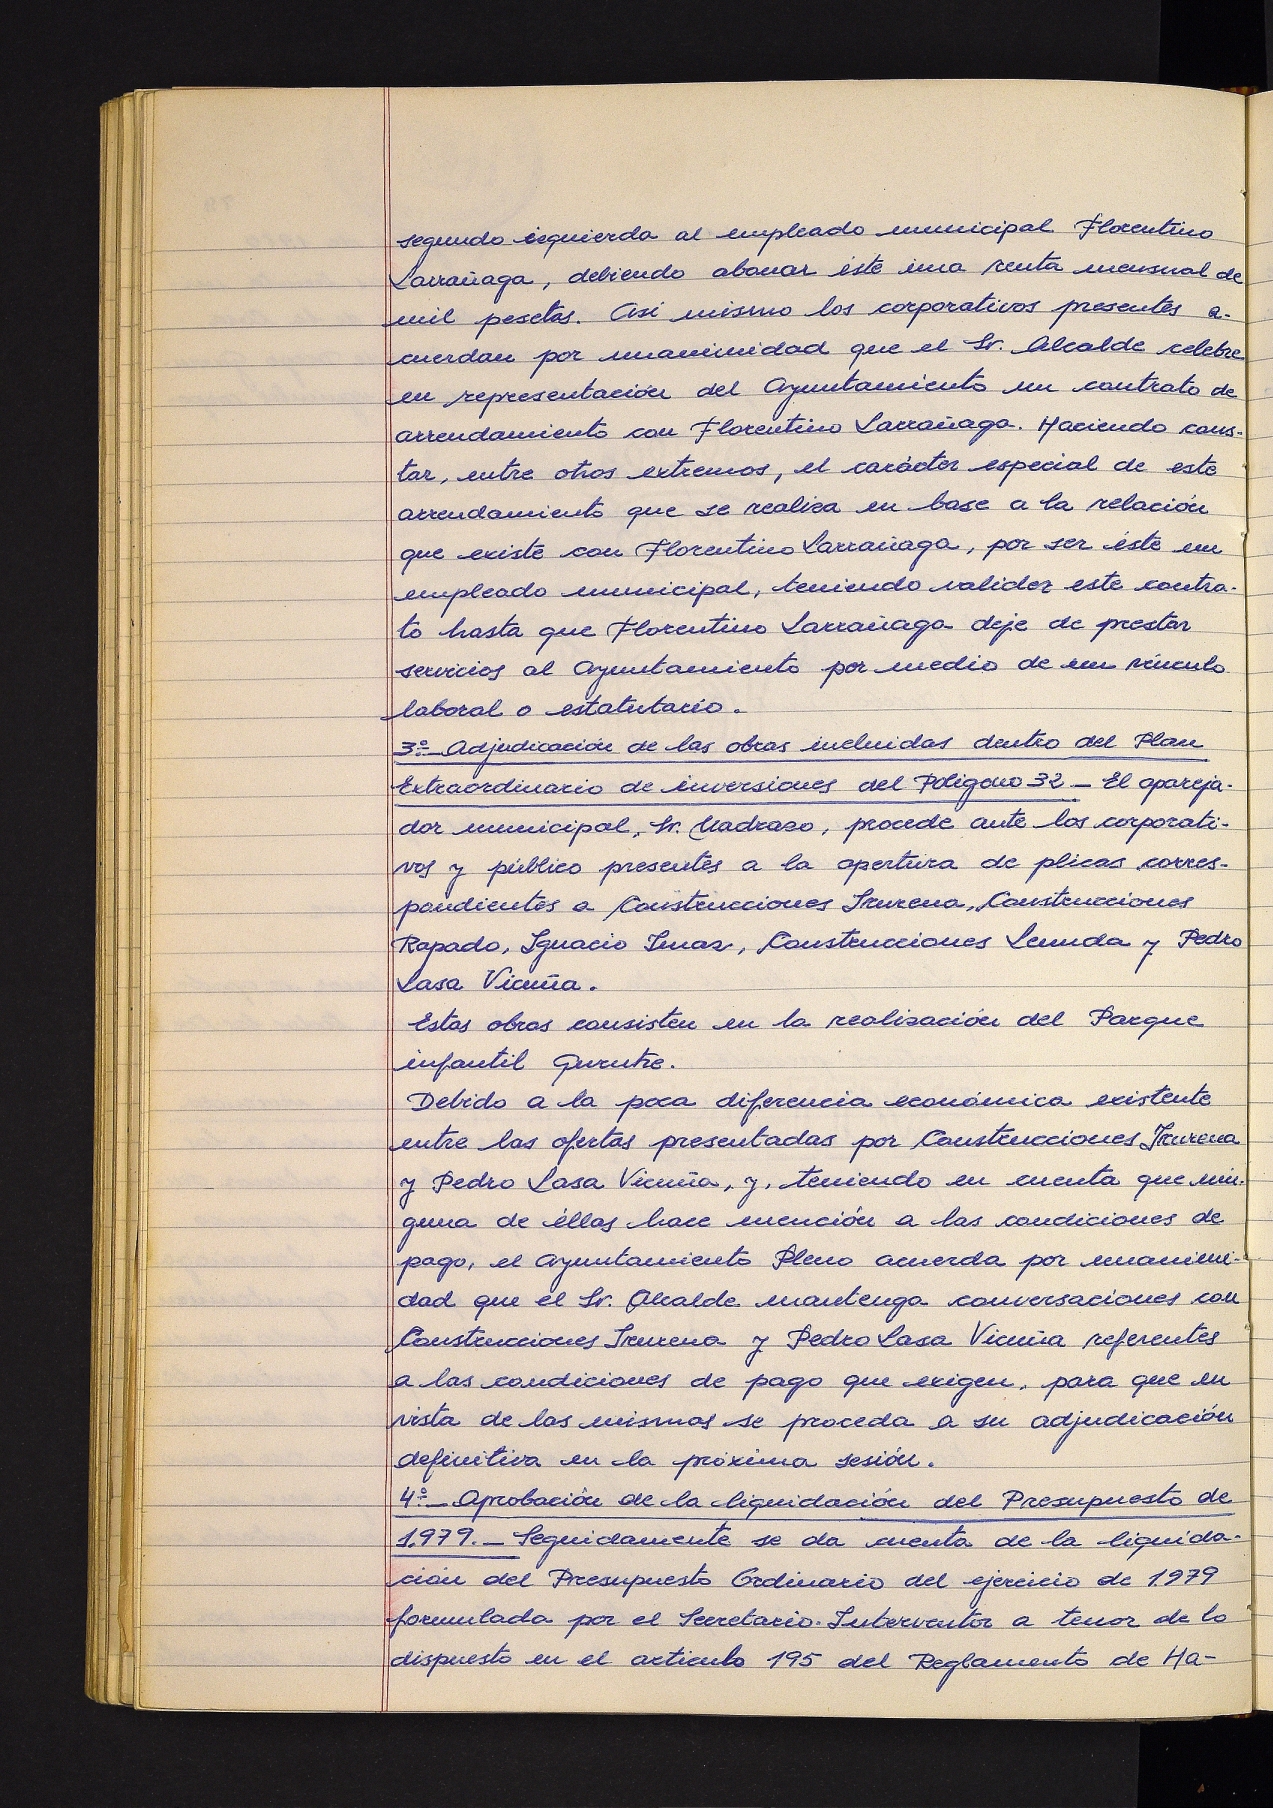 segundo izquierda al empleado municipal Florentino
Larrañaga, debiendo abonar éste una renta mensual de
mil pesetas. Asi mismo los corporativos presentes a-
cuerdan por unanimidad que el Sr. Alcalde celebre
en representación del Ayuntamiento un contrato de
arrendamiento con Florentino Larrañaga. Haciendo cons-
tar, entre otros extremos, el carácter especial de este
arrendamiento que se realiza en base a la relación
que existe con Florentino Larrañaga, por ser éste un
empleado municipal, teniendo validez este contra-
to hasta que Florentino Larrañaga deje de prestar
servicios al Ayuntamiento por medio de un vínculo
laboral o estatutario.
3º- Adjudicación de las obras incluidas dentro del Plan
Extraordinario de inversiones del Poligono 32 - El apareja-
dor municipal, Sr. Madrazo, procede ante los corporati-
vos y público presentes a la apertura de plicas corres-
pondientes a Construcciones Irurena, Construcciones
Rapado, Ignacio Imaz, Construcciones Lemda y Pedro
Lasa Vicuña.
Estas obras consisten en la realización del Parque
infantil Gurutze.
Debido a la poca diferencia económica existente
entre las ofertas presentadas por Construcciones Irurena
y Pedro Lasa Vicuña, y, teniendo en cuenta que nin-
guna de éllas hace mención a las condiciones de
pago, el Ayuntamiento Pleno acuerda por unanimi-
dad que el Sr. Alcalde mantenga conversaciones con
Construcciones Irurena y Pedro Lasa Vicuña referentes
a las condiciones de pago que exigen, para que en
vista de las mismas se proceda a su adjudicación
definitiva en la próxima sesión.
4º- Aprobación de la liquidación del Presupuesto de
1.979.- Seguidamente se da cuenta de la liquida-
ción del Presupuesto Ordinario del ejercicio de 1.979
formulada por el Secretario-Interventor a tenor de lo
dispuesto en el articulo 195 del Reglamento de Ha-